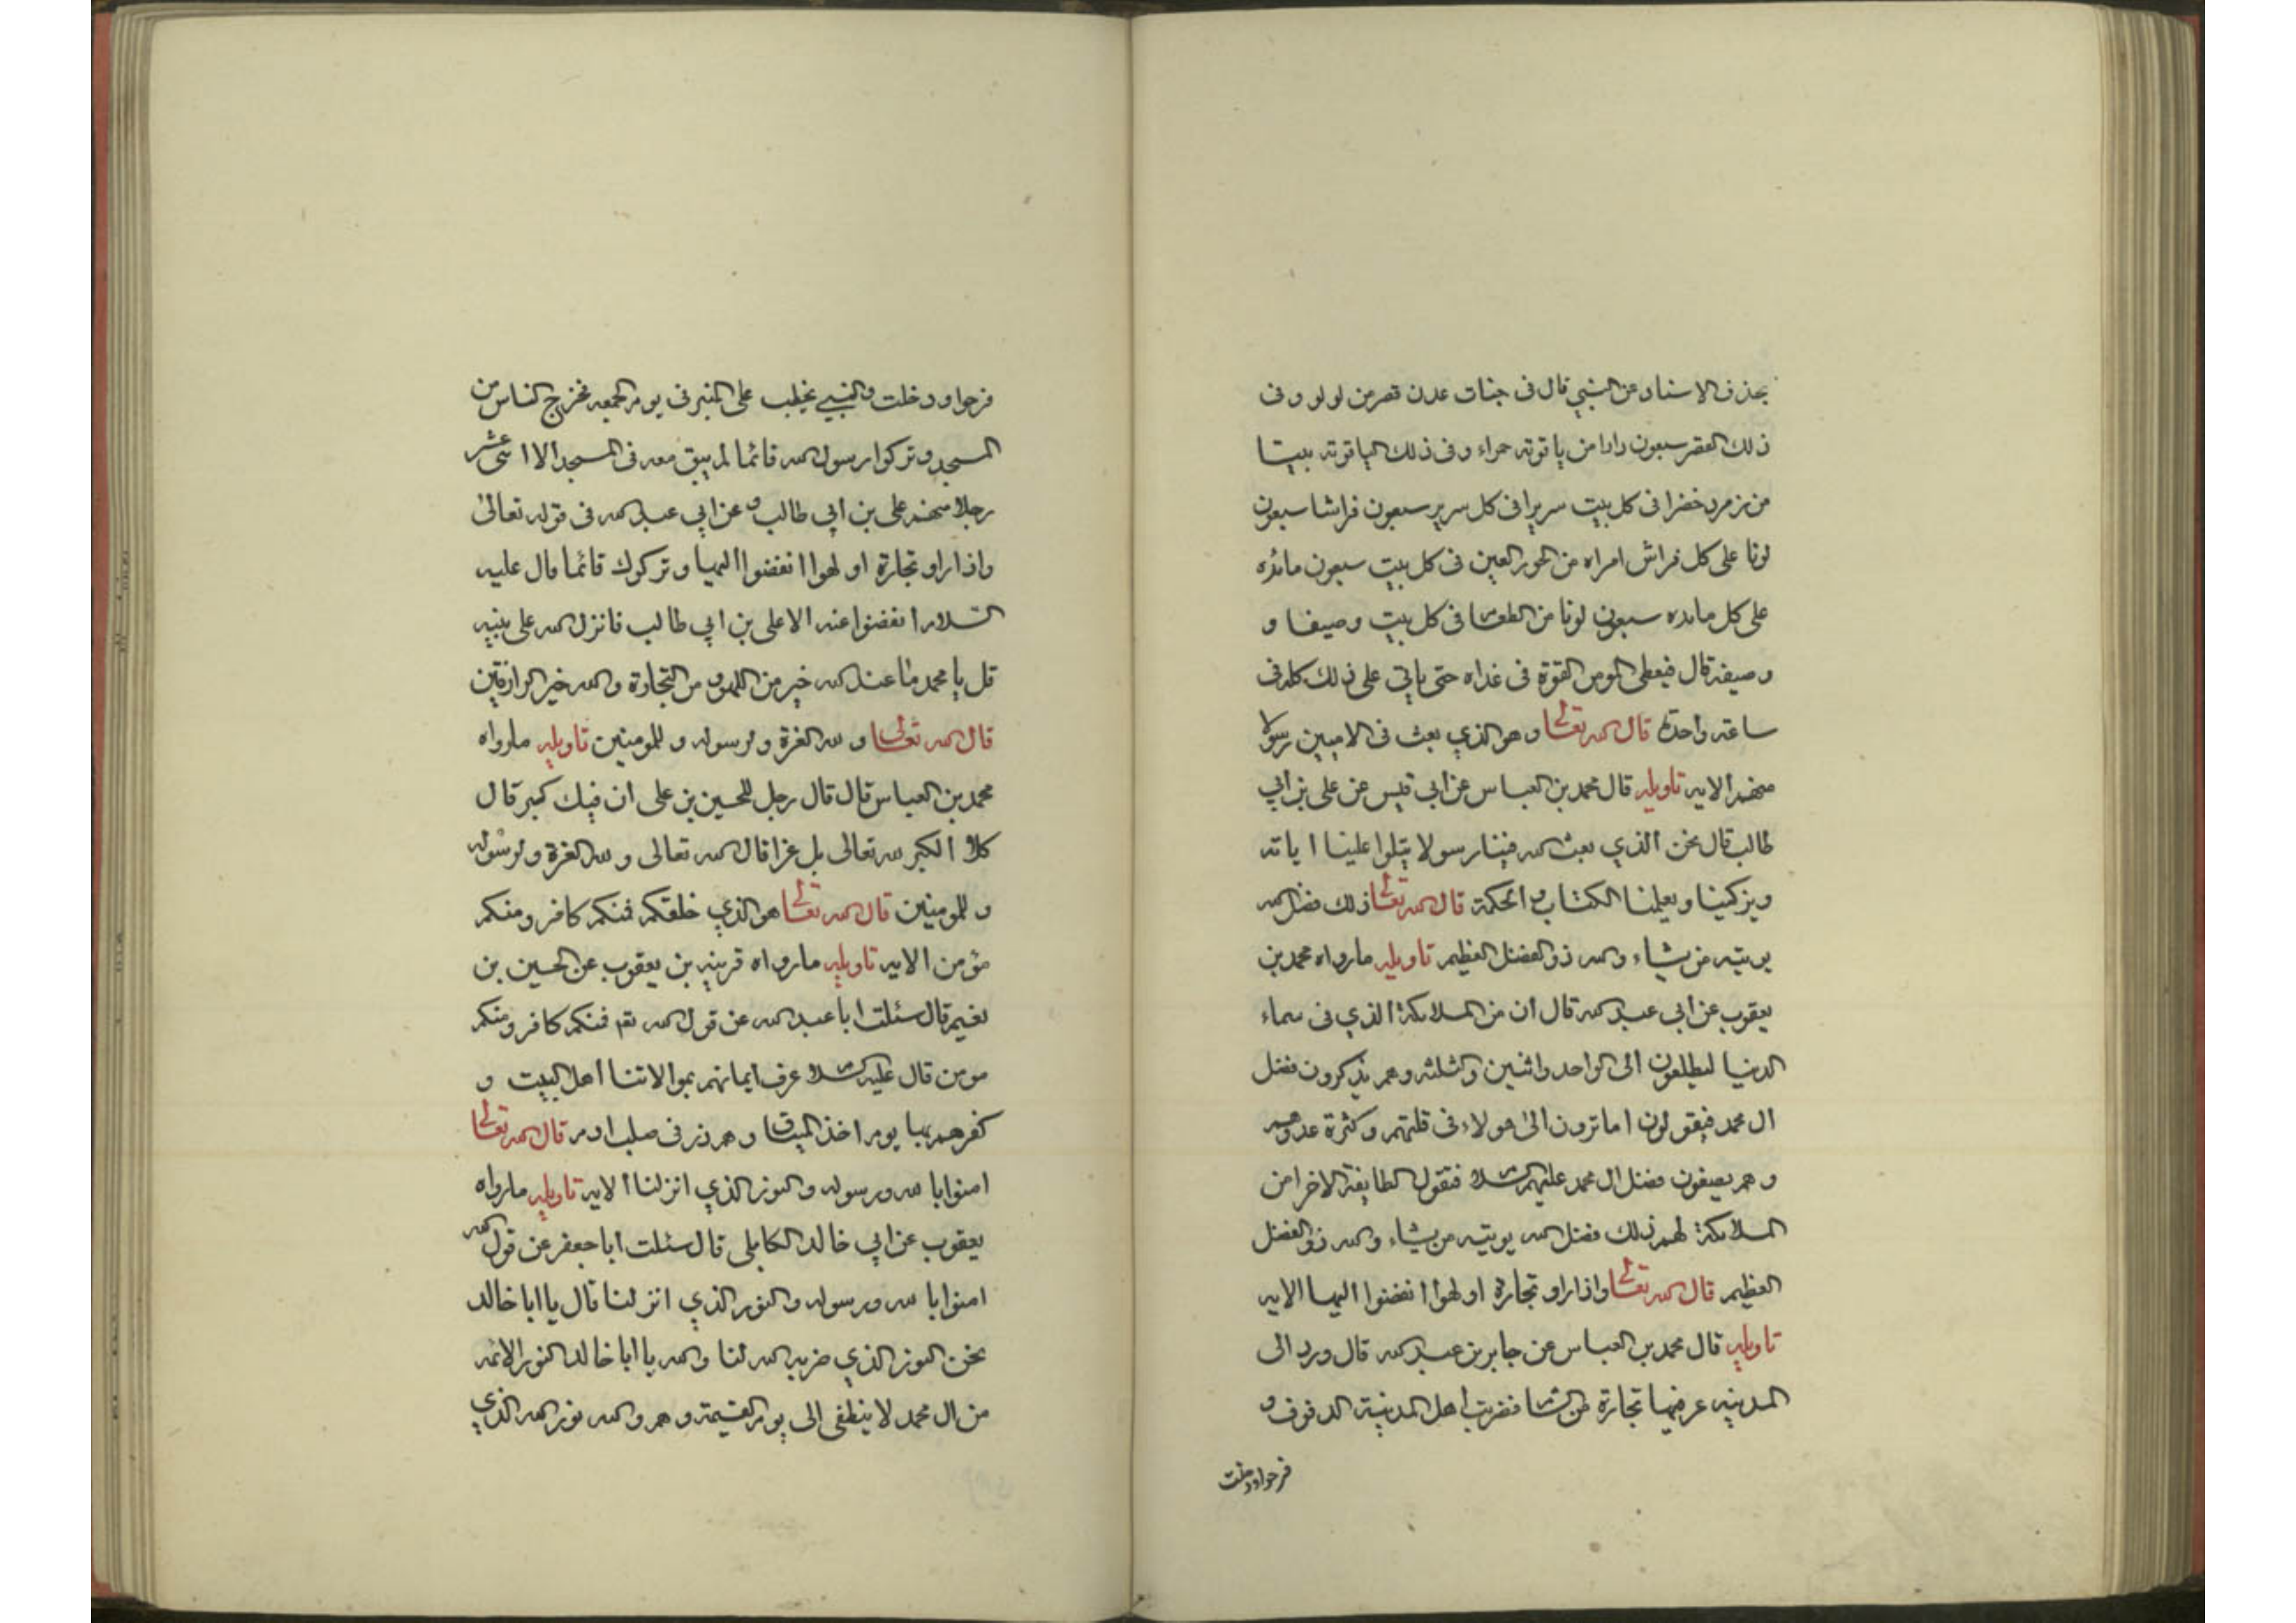 بحذف الاسناد عن النبي قال فى جنات عدن قصر من لولو وفى
ذلك القصر سبعون دارا من ياقوته حمراء وفى ذلك الياقوته بيتا
من زمرد خضرا فى كل بيت سريرا فى كل سرير سبعون فراشا سبعون
لونا على كل فراش امراه من الحور العين فى كل بيت سبعون مائده
على كل مائده سبعون لونا من الطعام فى كل بيت وصيفا و
وصيفه قال فيعطى المومن القوة فى غداه حتى ياتي على ذلك كله فى
ساعه واحدة قال الله تعالى وهو الذي بعث فى الاميين رسولا
منهم الايه تاويله قال محمد بن العباس عن ابي قيس عن على بن ابي
طالب قال نحن الذي بعث الله فينا رسولا يتلوا علينا اياته
ويزكينا ويعلمنا الكتاب و الحكمة قال الله تعالى ذلك فضل الله
يوتيه من يشاء والله ذو الفضل العظيم تاويله مارواه محمد بن
يعقوب عن ابى عبد الله قال ان من الملائكة الذي فى سماء
الدنيا ليطلعون الى الواحد واثنين والثلثه وهم يذكرون فضل
ال محمد فيقولون اما ترون الى هولاء فى قلتهم وكثرة عدوهم
وهم يصفون فضل ال محمد عليهم السلام فتقول الطايفة الاخرا من
الملائكة لهم ذلك فضل الله يوتيه من يشاء والله ذو الفضل
العظيم قال الله تعالى واذا راو تجارة او لهوا انفضوا اليها الايه
تاويله قال محمد بن العباس عن جابر بن عبد الله قال ورد الى
المدينه عير فيها تجارة من الشام فضربت اهل المدينة الدفوف و
فرحوا ودخلت
فرحوا ودخلت والنبي يخطب على المنبر فى يوم الجمعه فخرج الناس من
المسجد وتركوا رسول الله قائما لم يبق معه فى المسجد الا اثنى عشر
رجلا منهم على بن ابي طالب و عن ابي عبد الله فى قوله تعالى
واذا راو تجارة او لهوا انفضوا اليها وتركوك قائما قال عليه
السلام انفضوا عنه الا على بن ابي طالب فانزل الله على نبيه
قل يا محمد ما عند الله خير من اللهو و من التجارة والله خير الرازقين
قال الله تعالى و لله العزة ولرسوله وللمومنين تاويله مارواه
محمد بن العباس قال قال رجل للحسين بن على ان فيك كبر قال
كلا الكبر لله تعالى بل عزا قال الله تعالى و لله العزة ولرسوله
وللمومنين قال الله تعالى هو الذي خلقكم فمنكم كافر ومنكم
مؤمن الايه تاويله مارواه بن يعقوب عن الحسين بن
نعيم قال سئلت ابا عبد الله عن قول الله تع فمنكم كافر ومنكم
مومن قال عليه السلام عرف ايمانهم بموالاتنا اهل البيت و
كفرهم بها يوم اخذ الميثاق وهم ذر فى صلب ادم قال الله تعالى
امنوا با لله ورسوله والنور الذي انزلنا الايه تاويله مارواه
يعقوب عن ابي خالد الكابلي قال سئلت ابا جعفر عن قول الله
امنوا با لله ورسوله والنور الذي انزلنا قال يا ابا خالد
نحن النور الذي الله لنا والله يا ابا خالد النور الائمه
من ال محمد لا ينطفى الى يوم القيمة وهم والله نور الله الذي